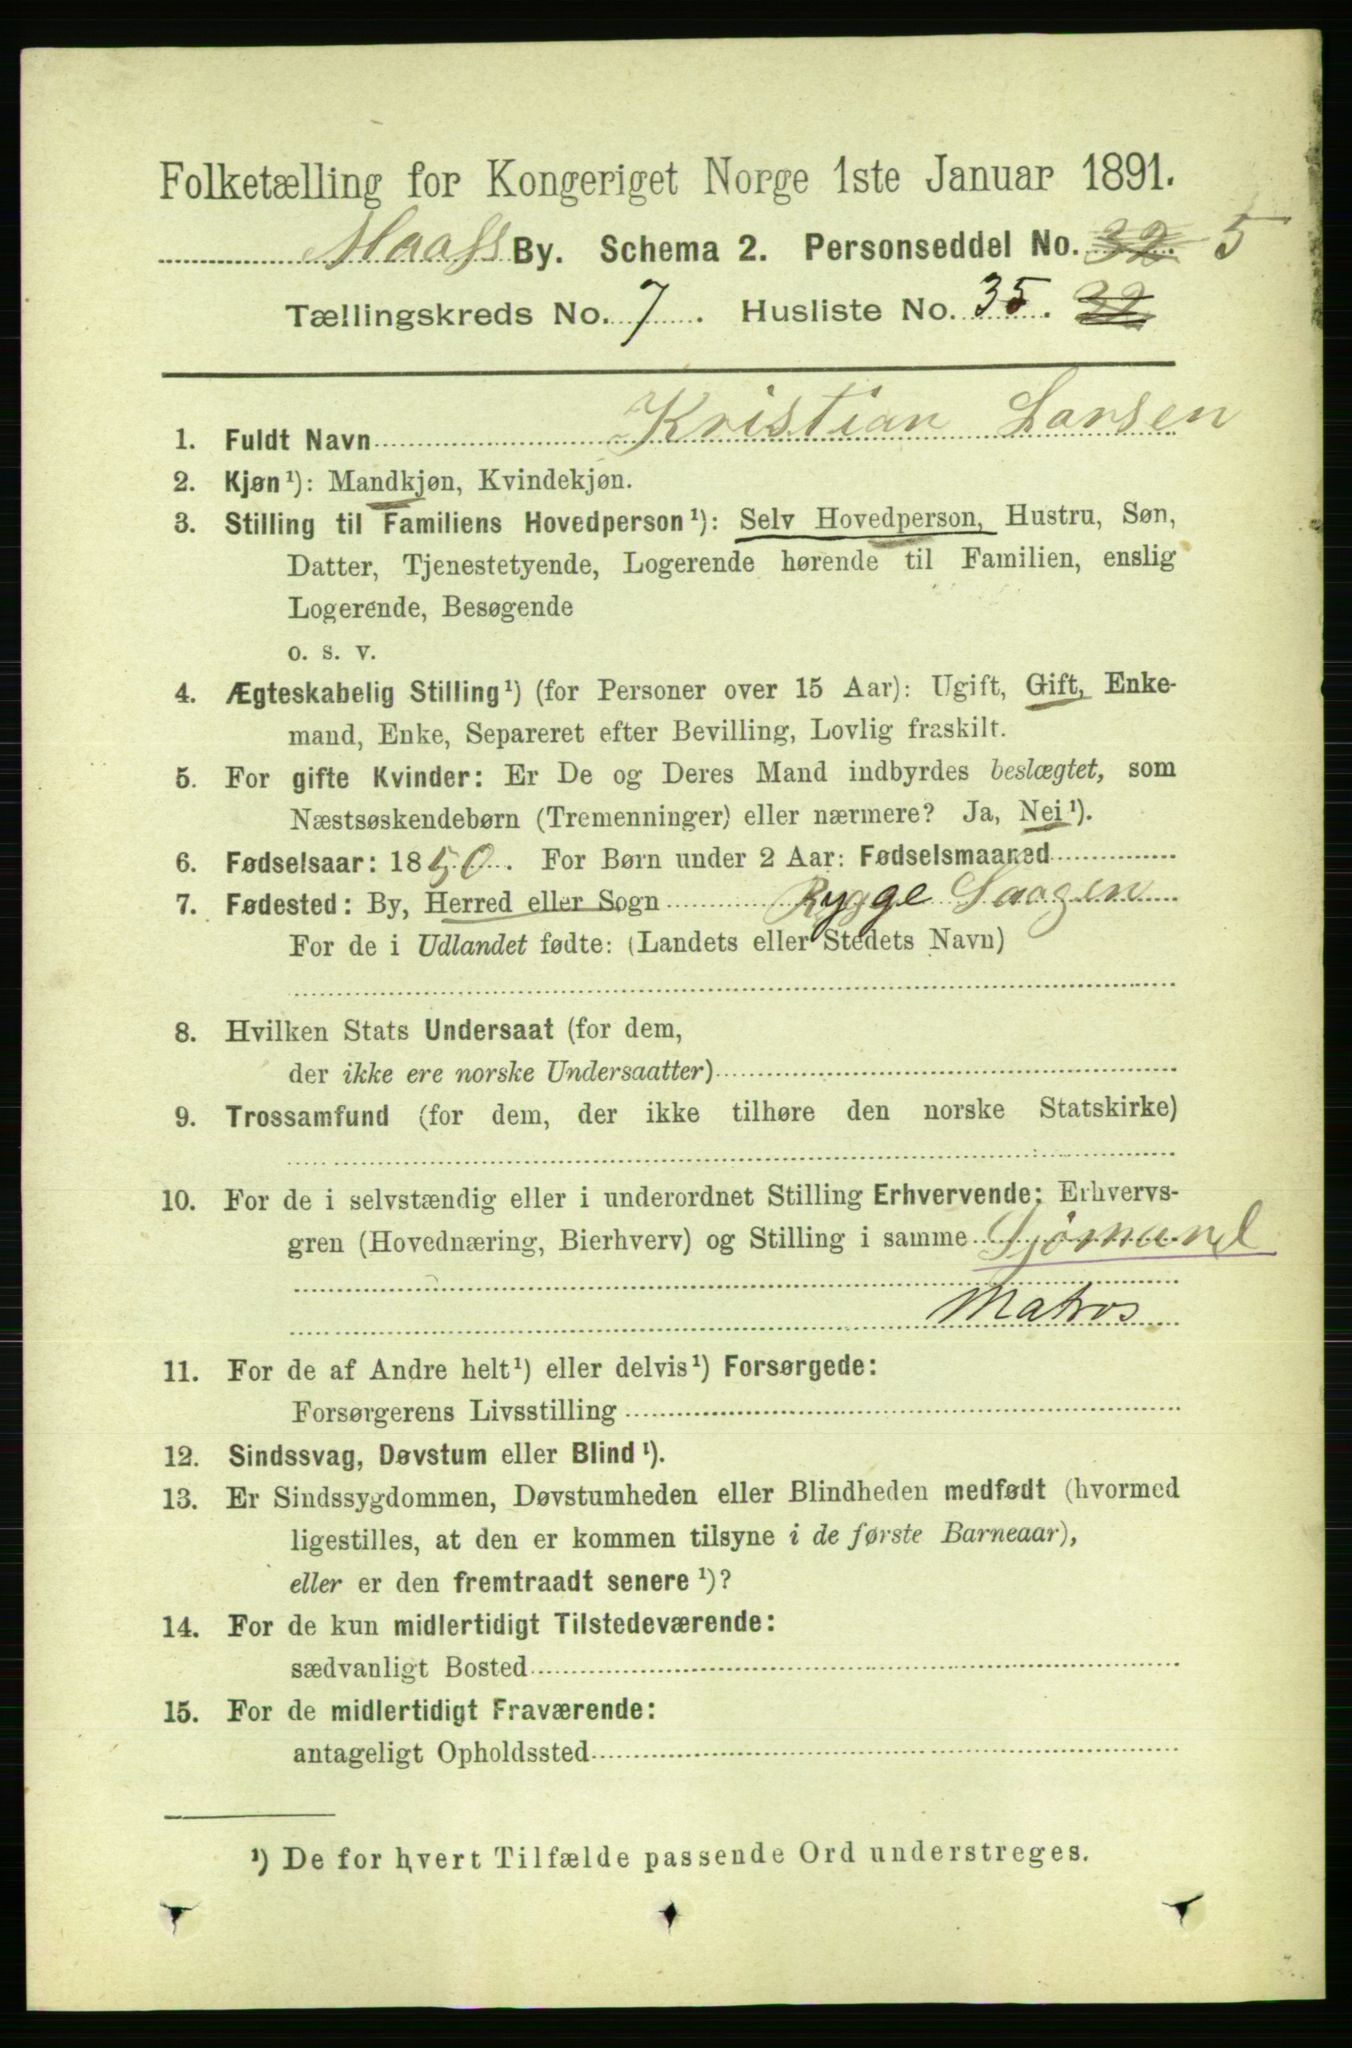 Folketælling for Kongeriget Norge 1ste Januar 1891.
By. Schema 2. Personseddel No. 32. 5
Tællingskreds No. 7. Husliste No. 35. 32
1. Fuldt Navn Kristian Larsen
2. Kjøn¹): Mandkjøn, Kvindekjøn.
3. Stilling til Familiens Hovedperson¹): Selv Hovedperson, Hustru, Søn,
Datter, Tjenestetyende, Logerende hørende til Familien, enslig
Logerende, Besøgende
o. s. v.
4. Ægteskabelig Stilling¹) (for Personer over 15 Aar): Ugift, Gift, Enke-
mand, Enke, Separeret efter Bevilling, Lovlig fraskilt.
5. For gifte Kvinder: Er De og Deres Mand indbyrdes beslægtet, som
Næstsøskendebørn (Tremenninger) eller nærmere? Ja, Nei¹).
6. Fødselsaar: 1850. For Børn under 2 Aar: Fødselsmaaned
7. Fødested: By, Herred eller Sogn Rygge Saagen
For de i Udlandet fødte: (Landets eller Stedets Navn)
8. Hvilken Stats Undersaat (for dem,
der ikke ere norske Undersaatter)
9. Trossamfund (for dem, der ikke tilhøre den norske Statskirke)
10. For de i selvstændig eller i underordnet Stilling Erhvervende: Erhvervs-
gren (Hovednæring, Bierhverv) og Stilling i samme Sjømand
Matros
11. For de af Andre helt¹) eller delvis¹) Forsørgede:
Forsørgerens Livsstilling
12. Sindssvag, Døvstum eller Blind¹).
13. Er Sindssygdommen, Døvstumheden eller Blindheden medfødt (hvormed
ligestilles, at den er kommen tilsyne i de første Barneaar),
eller er den fremtraadt senere¹)?
14. For de kun midlertidigt Tilstedeværende:
sædvanligt Bosted
15. For de midlertidigt Fraværende:
antageligt Opholdssted
¹) De for hvert Tilfælde passende Ord understreges.